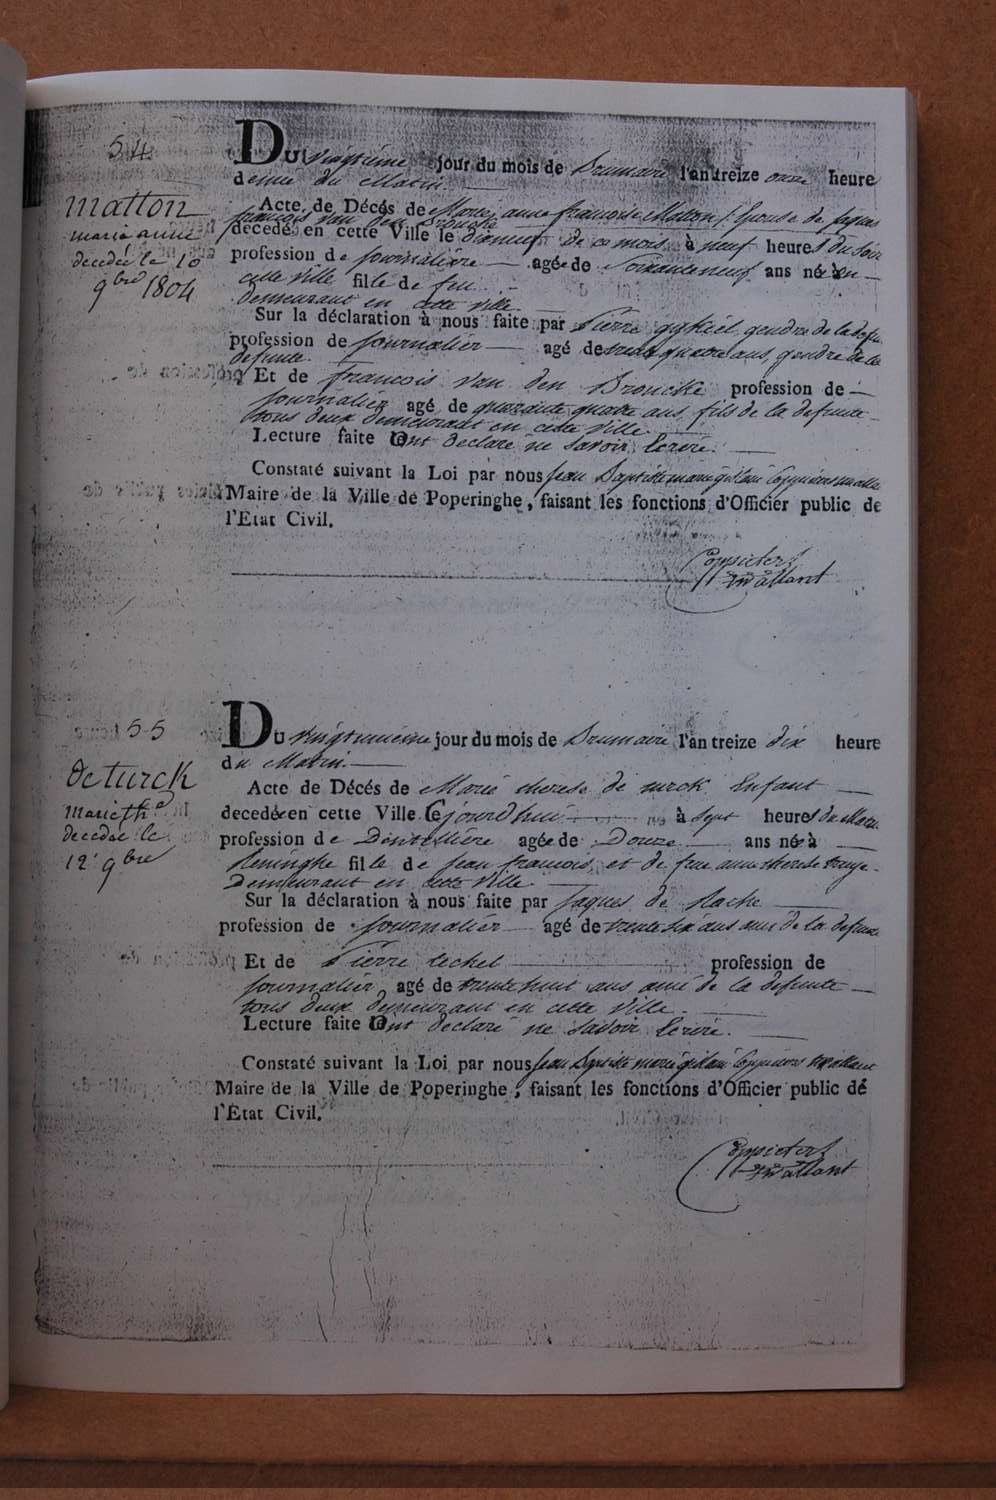 54
Du vingtième jour du mois de Brumaire l'an treize onze heure
demie du Matin.
Matton
marie anne
decedée le 10
9bre 1804
Acte de Décés de Marie anne francoise Matton, Epouse de Jaques
francois van den Broucke
decedé en cette Ville le dixneuf de ce mois à neuf heures du Soir
profession de Journalière agée de Soixanteneuf ans née en
cette ville fille de feu
demeurant en cette ville.
Sur la déclaration à nous faite par Pierre gendre de la
profession de Journalier agé de quatre ans, gendre de la
defunte.
Et de francois van den Broucke profession de
Journalier agé de quarante quatre ans, fils de la defunte
tous deux demeurant en cette ville.
Lecture faite ont declaré ne savoir Ecrire.
Constaté suivant la Loi par nous Jean Baptiste marie
Maire de la Ville de Poperinghe, faisant les fonctions d'Officier public de
l'Etat Civil.
55
Du vingtunieme jour du mois de Brumaire l'an treize dix heure
du Matin.
de turck
marie the
decedée le
12 9bre
Acte de Décés de Marie therese de turck Enfant
decedée en cette Ville Ce jourd'hui à Sept heures du Matin
profession de Dentellière agée de Douze ans née à
fille de Jean francois, et de feue anne therese
Demeurant en cette Ville
Sur la déclaration à nous faite par Jaques de
profession de Journalier agé de trente six ans ami de la defunte
Et de Pierre profession de
Journalier agé de trente huit ans ami de la defunte
tous deux demeurant en cette Ville.
Lecture faite ont declaré ne savoir Ecrire.
Constaté suivant la Loi par nous Jean Baptiste marie
Maire de la Ville de Poperinghe, faisant les fonctions d'Officier public de
l'Etat Civil.